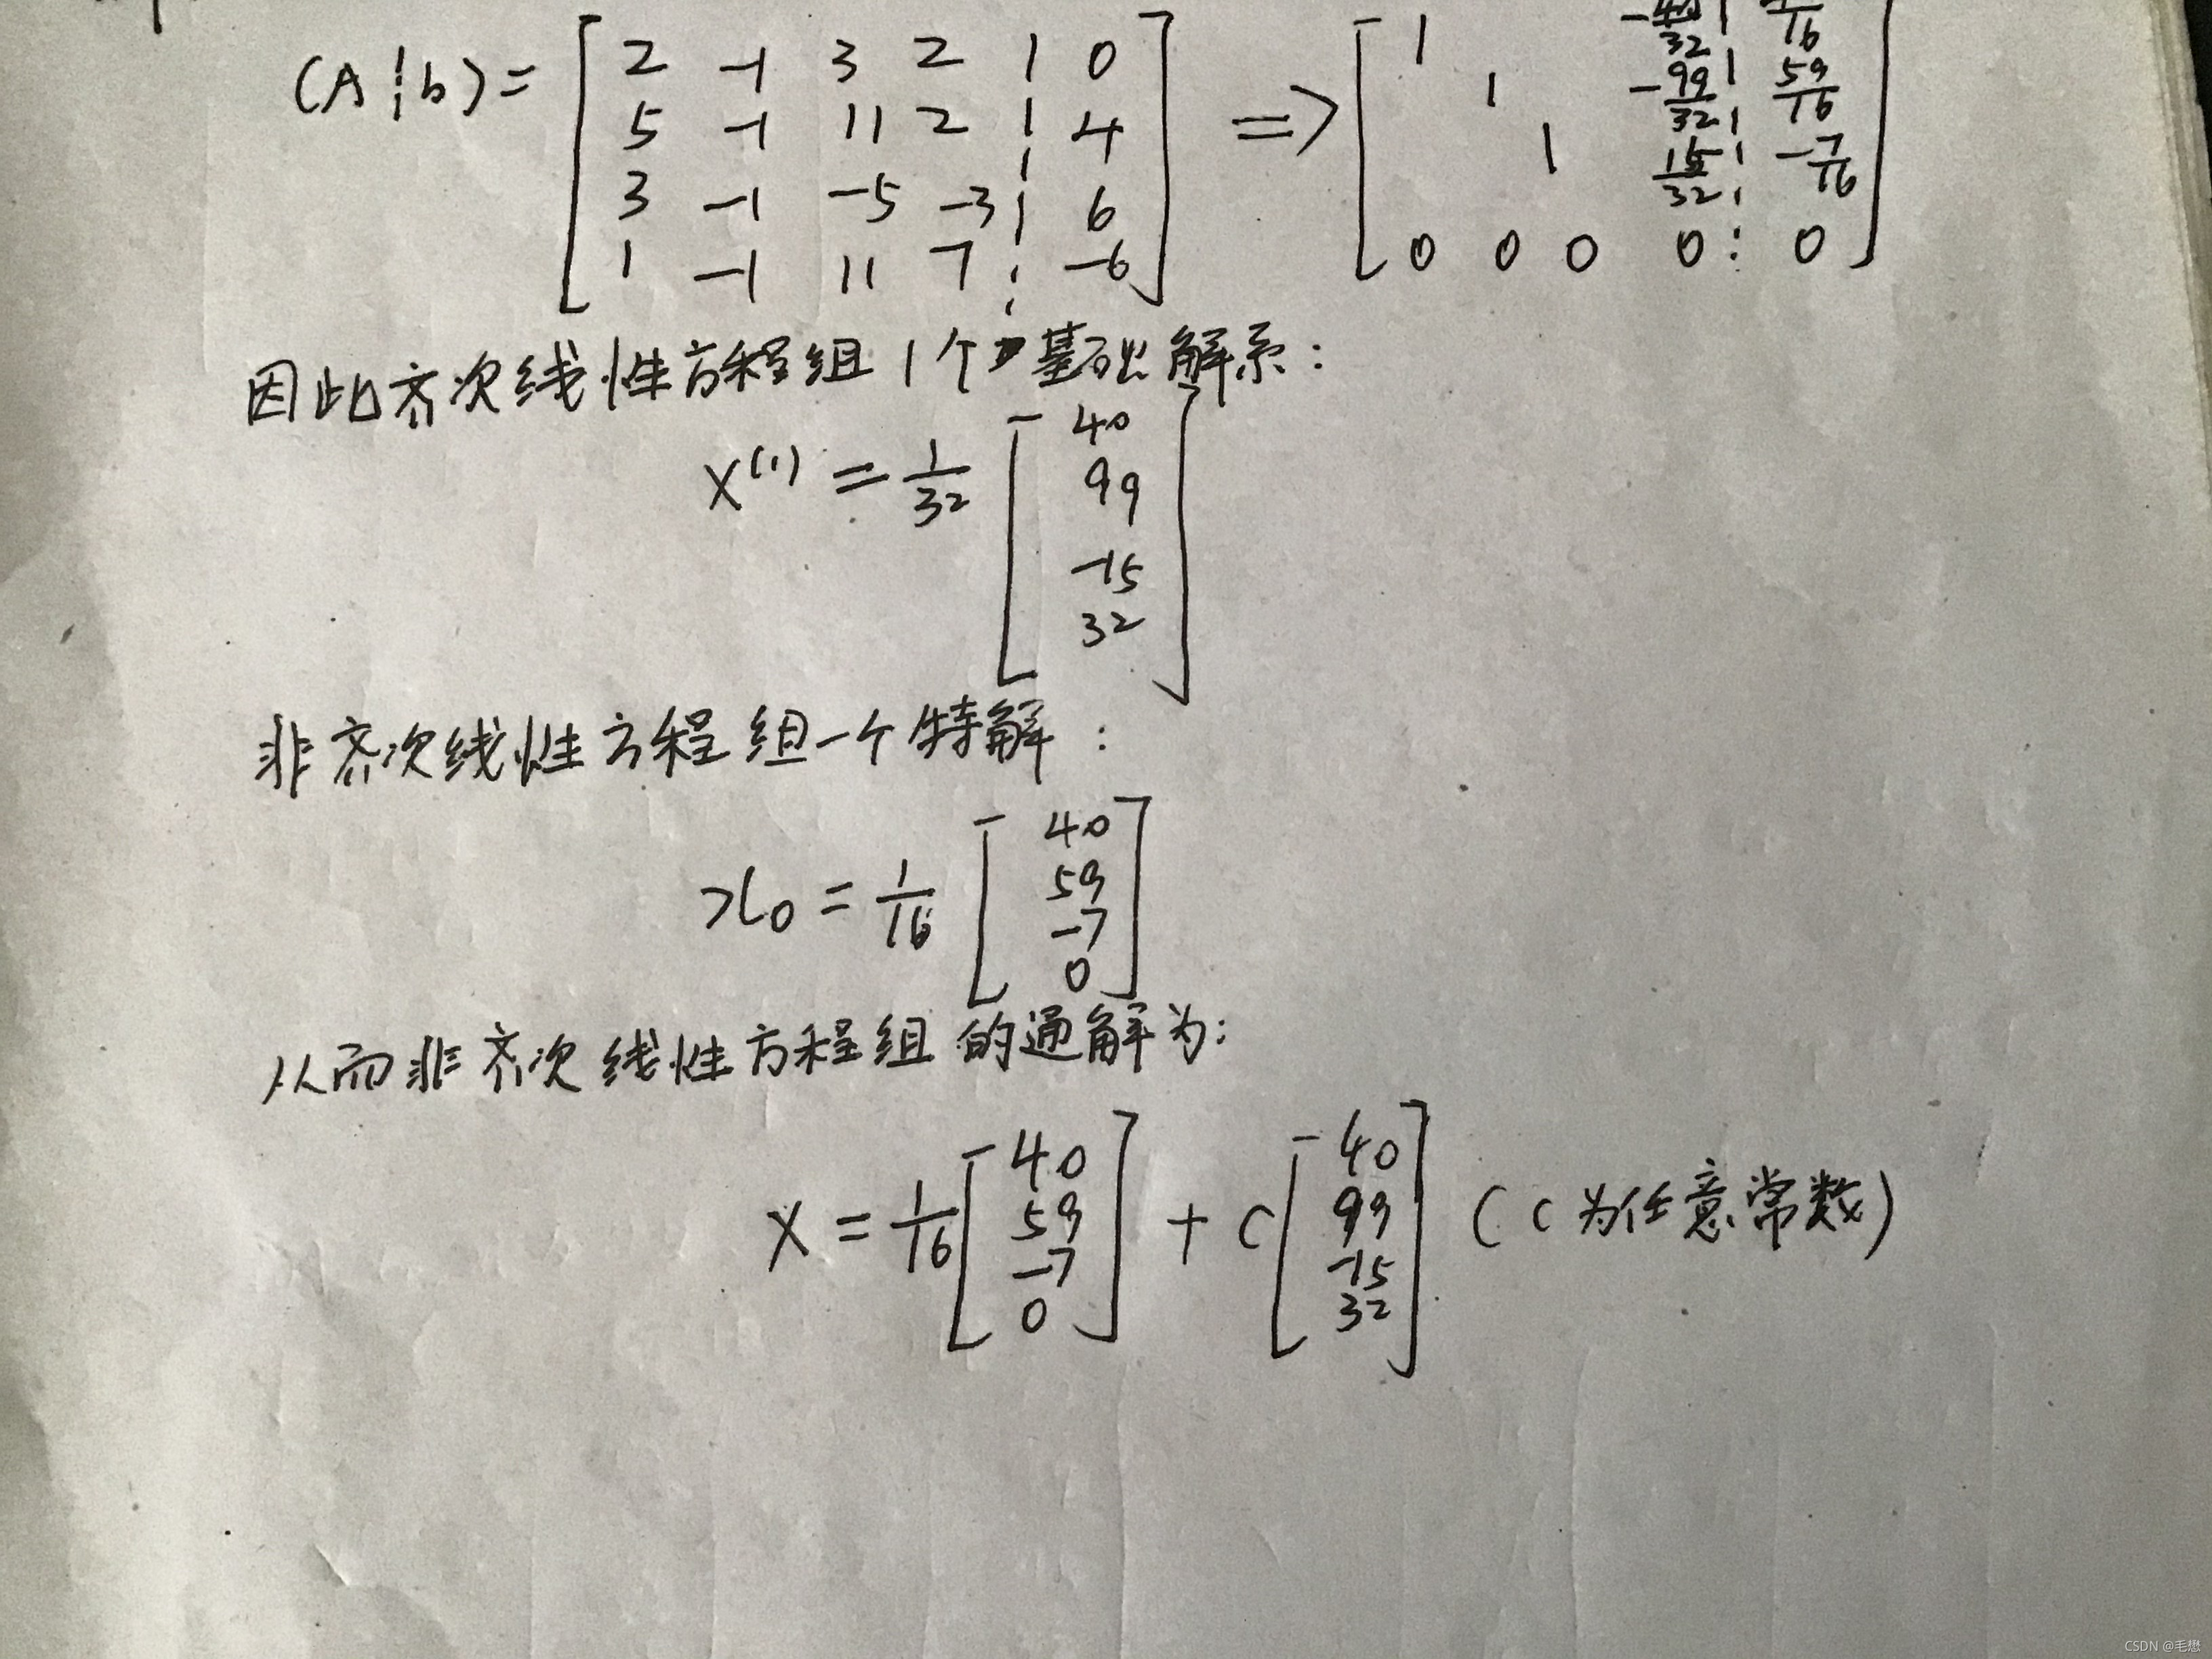 (A ¦ b) = [ 2 -1 3 2 ¦ 0 ] => [ 1 -40/32 ¦ /16 ]
[ 5 -1 11 2 ¦ 4 ] [ 1 -99/32 ¦ 59/16 ]
[ 3 -1 -5 -3 ¦ 6 ] [ 1 15/32 ¦ -7/16 ]
[ 1 -1 11 7 ¦ -6 ] [ 0 0 0 0 ¦ 0 ]
因此齐次线性方程组1个基础解系:
X⁽¹⁾ = 1/32 [ 40
99
-15
32 ]
非齐次线性方程组一个特解:
x₀ = 1/16 [ 40
59
-7
0 ]
从而非齐次线性方程组的通解为:
X = 1/16 [ 40 59 -7 0 ] + C [ 40 99 -15 32 ] (C为任意常数)
CSDN @毛懋